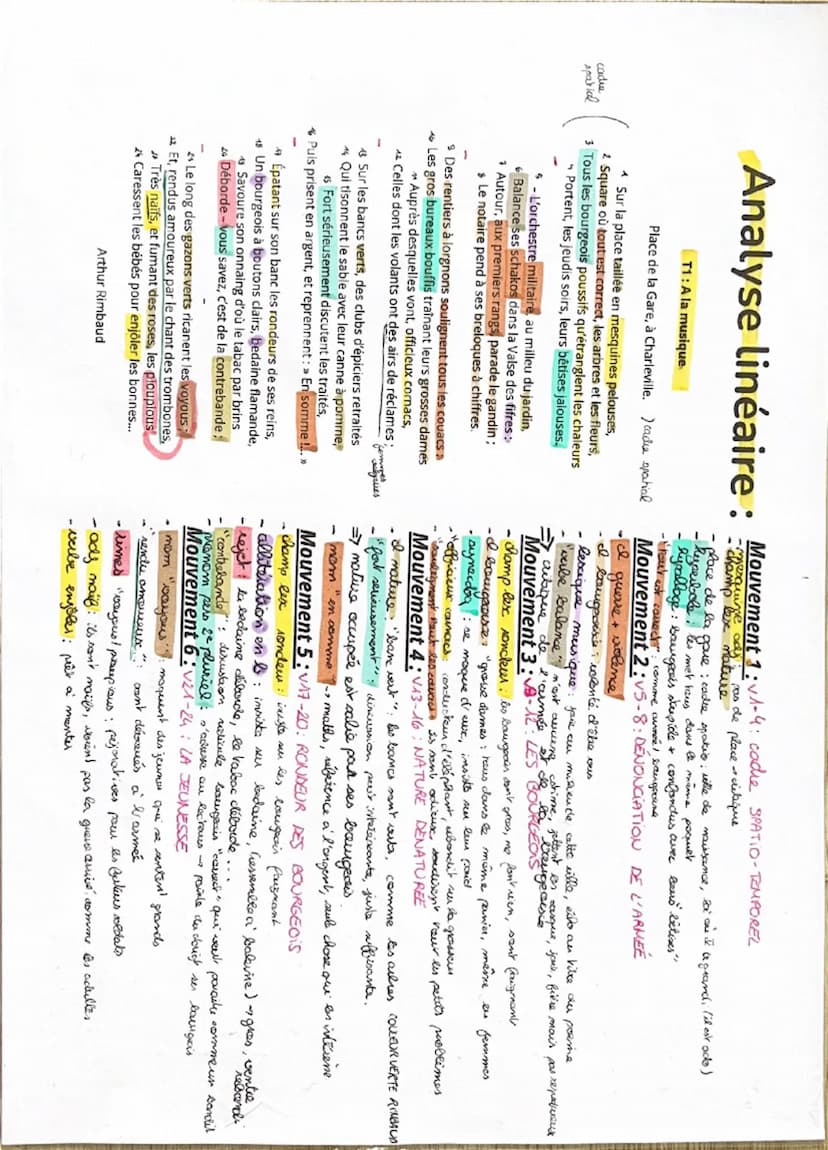 Analyse linéaire :
T1 : A la musique
Place de la Gare, à Charleville.
) cadre spatial
cadre spatial (
1 Sur la place taillée en mesquines pelouses,
2 Square où tout est correct, les arbres et les fleurs,
3 Tous les bourgeois poussifs qu'étranglent les chaleurs
4 Portent, les jeudis soirs, leurs bêtises jalouses.
5 - L'orchestre militaire, au milieu du jardin,
6 Balance ses schakos dans la Valse des fifres :
7 Autour, aux premiers rangs, parade le gandin ;
8 Le notaire pend à ses breloques à chiffres.
9 Des rentiers à lorgnons soulignent tous les couacs :
10 Les gros bureaux bouffis traînant leurs grosses dames
11 Auprès desquelles vont, officieux cornacs,
12 Celles dont les volants ont des airs de réclames ;
13 Sur les bancs verts, des clubs d'épiciers retraités
14 Qui tisonnent le sable avec leur canne à pomme,
15 Fort sérieusement discutent les traités,
16 Puis prisent en argent, et reprennent : » En somme !...»
17 Épatant sur son banc les rondeurs de ses reins,
18 Un bourgeois à boutons clairs, bedaine flamande,
19 Savoure son onnaing d'où le tabac par brins
20 Déborde – vous savez, c'est de la contrebande ;
21 Le long des gazons verts ricanent les voyous ;
22 Et, rendus amoureux par le chant des trombones,
23 Très naïfs, et fumant des roses, les pioupious
24 Caressent les bébés pour enjôler les bonnes...
Arthur Rimbaud
Mouvement 1 : v1-4 : cadre SPATIO-TEMPOREL
- mesquine adj : pas de place → critique
- champ lex nature
- place de la gare : cadre spatio : ville de naissance,
- hyperbole : les met tous dans le même paquet
- hypallage : bourgeois stupide + confondus avec leurs "bêtises"
- "tout est correct" : comme armée / bourgeoisie
Mouvement 2 : v5-8 : DÉNONCIATION DE L'ARMEÉ
- cl guerre + violence
- cl bourgeoisie : volonté d'être vus
- lexique musique : joie au milieu de cette ville, écho au titre du poème
- "verbe balance" : n'ont aucune estime,
=> critique de l'armée et de la bourgeoisie
Mouvement 3 : v9-12 : LES BOURGEOIS
- champ lex rondeur : les bourgeois sont gros, ne font rien, sont fainéants
- cl bourgeoisie : "grosse dames" : tous dans le même panier, même les femmes
- : se moque d'eux, insiste sur leur poids
- "officieux cornacs" : conducteur d'éléphant, rebondit sur la grosseur
- "soulignent tous les couacs" : ils sont odieux, soulignent tout les petits problèmes
Mouvement 4 : v13-16 : NATURE DENATUREE
- cl nature : "banc vert" : les bancs sont verts, comme les arbres COULEUR VERTE RIMBAUD
- "fort sérieusement" : discussion peu intéressante, juste suffisante.
=> nature occupée est salie par ses bourgeois.
- nom "en somme" → maths, référence à l'argent, seule chose qui les intéresse
Mouvement 5 : v17-20 : RONDEUR DES BOURGEOIS
- champ lex rondeur : insiste sur les bourgeois fainéant
- allitération en b : insiste sur bedaine, (ressemble à baleine) → gros, ventre rebondi
- rejet : la bedaine déborde, le tabac déborde...
- "contrebande" : situation ridicule bourgeois "correct" qui veut paraître comme un bandit
- pronom pers 2e pluriel : s'adresse au lecteurs → pointe du doigt les bourgeois
Mouvement 6 : v21-24 : LA JEUNESSE
- nom "voyous" : moquent des jeunes qui se sentent grands
- "rendu amoureux" : sont dévoués à l'armée
- rimes "voyous / pioupious" : péjoratives pour les futurs soldats
- adj naïf : ils sont naïfs, voient pas la guerre arrivé comme les adultes
- verbe enjôler : prêt à mentir